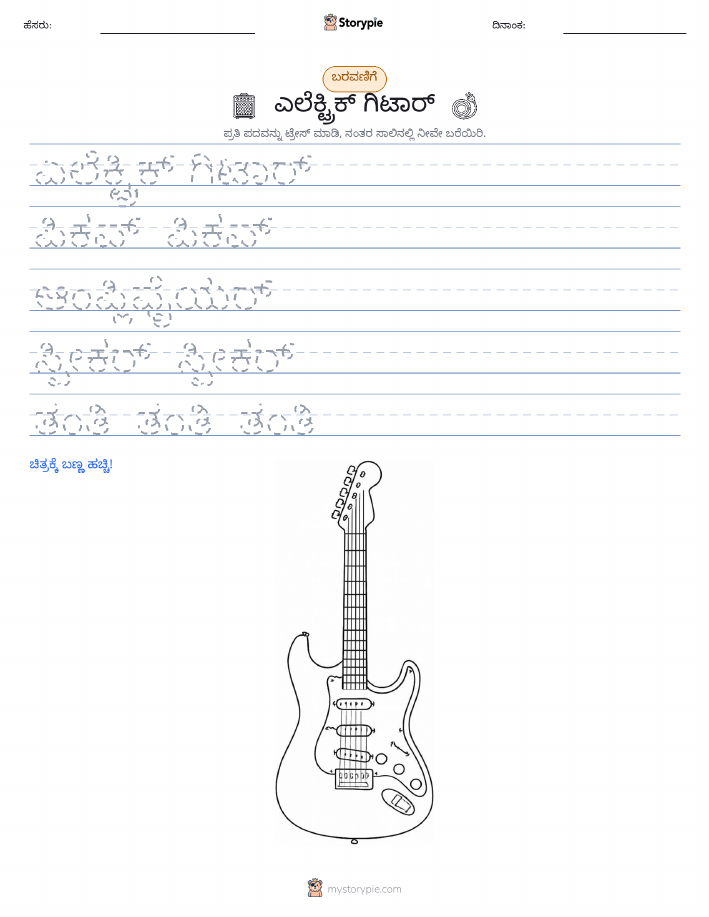 ಹೆಸರು:
Storypie
ದಿನಾಂಕ:
ಬರವಣಿಗೆ
ಎಲೆಕ್ಟ್ರಿಕ್ ಗಿಟಾರ್
ಪ್ರತಿ ಪದವನ್ನು ಟ್ರೇಸ್ ಮಾಡಿ, ನಂತರ ಸಾಲಿನಲ್ಲಿ ನೀವೇ ಬರೆಯಿರಿ.
ಎಲೆಕ್ಟ್ರಿಕ್ ಗಿಟಾರ್
ಪಿಕಪ್ ಪಿಕಪ್
ಆಂಪ್ಲಿಫೈಯರ್
ಸ್ಪೀಕರ್ ಸ್ಪೀಕರ್
ತಂತಿ ತಂತಿ ತಂತಿ
ಚಿತ್ರಕ್ಕೆ ಬಣ್ಣ ಹಚ್ಚಿ!
mystorypie.com